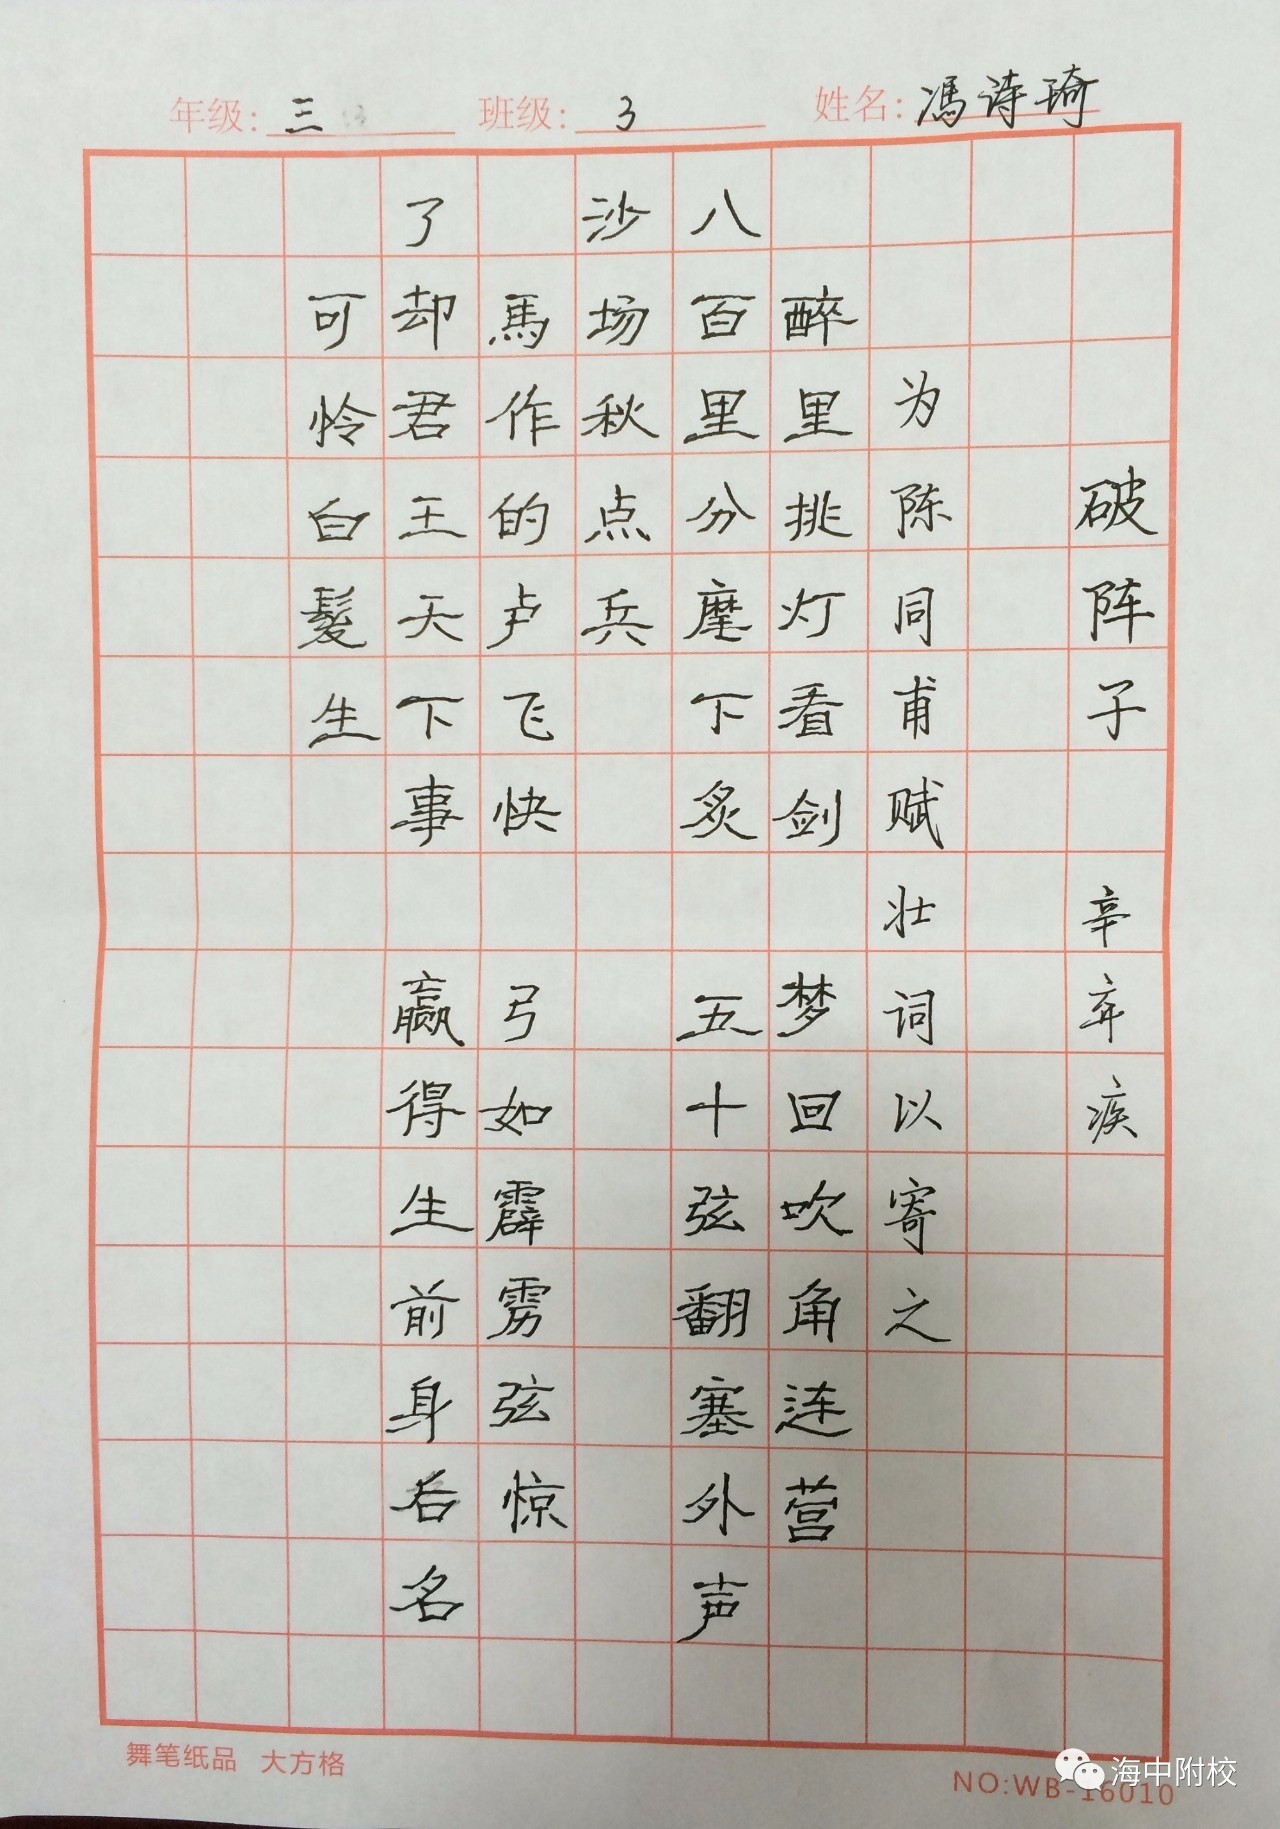 年级：三 班级：3 姓名：馮诗琦
破阵子 辛弃疾
为陈同甫赋壮词以寄之
醉里挑灯看剑 梦回吹角连营
八百里分麾下炙 五十弦翻塞外声
沙场秋点兵
馬作的卢飞快 弓如霹雳弦惊
了却君王天下事 赢得生前身后名
可怜白髮生
舞笔纸品 大方格
NO:WB-16010
海中附校